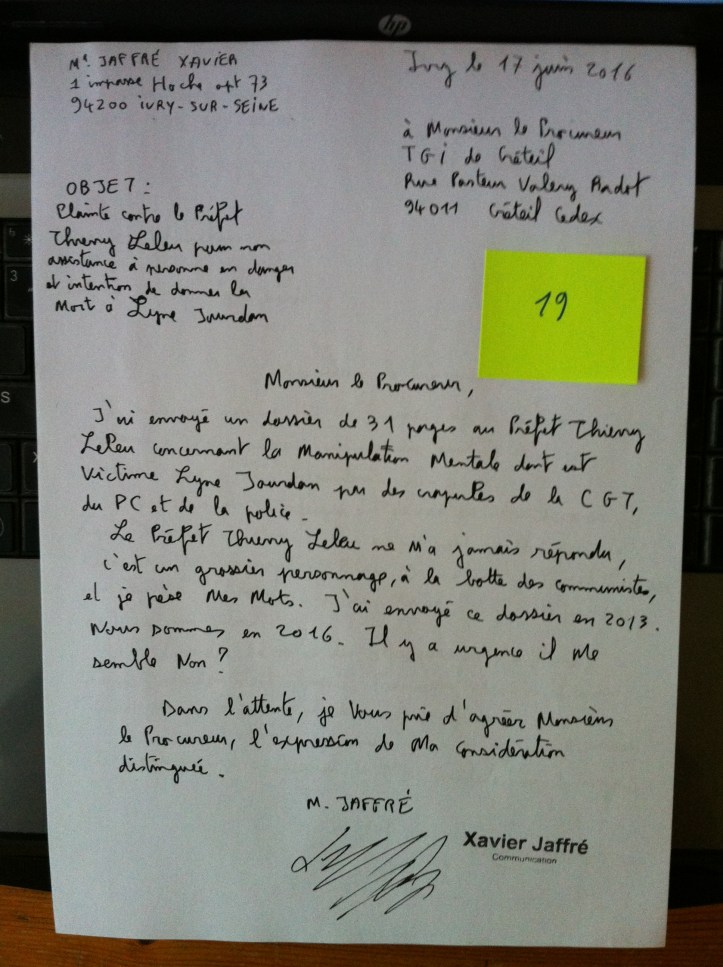 hp
Mr. JAFFRÉ XAVIER
1 impasse Hoche apt 73
94200 IVRY-SUR-SEINE
Ivry le 17 juin 2016
à Monsieur le Procureur
TGI de Créteil
Rue Pasteur Valery Radot
94011 Créteil Cedex
OBJET :
Plainte contre le Préfet
Thierry Leleu pour non
assistance à personne en danger
et intention de donner la
Mort à Lyne Jourdan
19
Monsieur le Procureur,
J'ai envoyé un dossier de 31 pages au Préfet Thierry
Leleu concernant la Manipulation Mentale dont est
Victime Lyne Jourdan par des crapules de la CGT,
du PC et de la police.
Le Préfet Thierry Leleu ne m'a jamais répondu,
c'est un grossier personnage, à la botte des communistes,
et je pèse Mes Mots. J'ai envoyé ce dossier en 2013.
Nous sommes en 2016. Il y a urgence il Me
semble Non ?
Dans l'attente, je Vous prie d'agréer Monsieur
le Procureur, l'expression de Ma Considération
distinguée.
M. JAFFRÉ
Xavier Jaffré
Communication